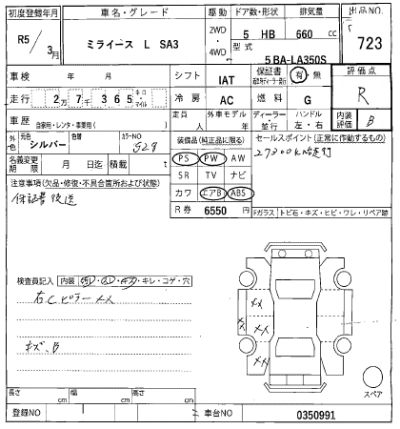 初度登録年月 車名・グレード 駆動 ドア数・形状 排気量 出品NO.
R5/3月 ミライース L SA3 2WD・4WD 5 HB 660 cc 723
型式 5BA-LA350S
車検 年 月 シフト IAT 保証書 有 無 評価点
走行 2万7千365 キロ・マイル 冷房 AC 燃料 G R
車歴 自家用・レンタ・事業用( ) 定員 人 外車モデル 年 ディーラー・並行 ハンドル 左・右 内装評価 B
外色 シルバー 色替 カラーNO S28 装備品(純正品に限る) セールスポイント(正常に作動するもの)
名義変更期限 月 日迄 積載 t PS PW AW 27300km走行
注意事項(欠品・修復・不具合箇所および状態) SR TV ナビ
保証書後送 カワ エアB ABS
R券 6550円 Fガラス トビ石・キズ・ヒビ・ワレ・リペア跡
検査員記入 内装 ・キレ・コゲ・穴
右Cピラー メメ
キズ、B
メメ
メメ
メメ
スペア
長さ cm 幅 cm 高さ cm
登録NO 車台NO 0350991